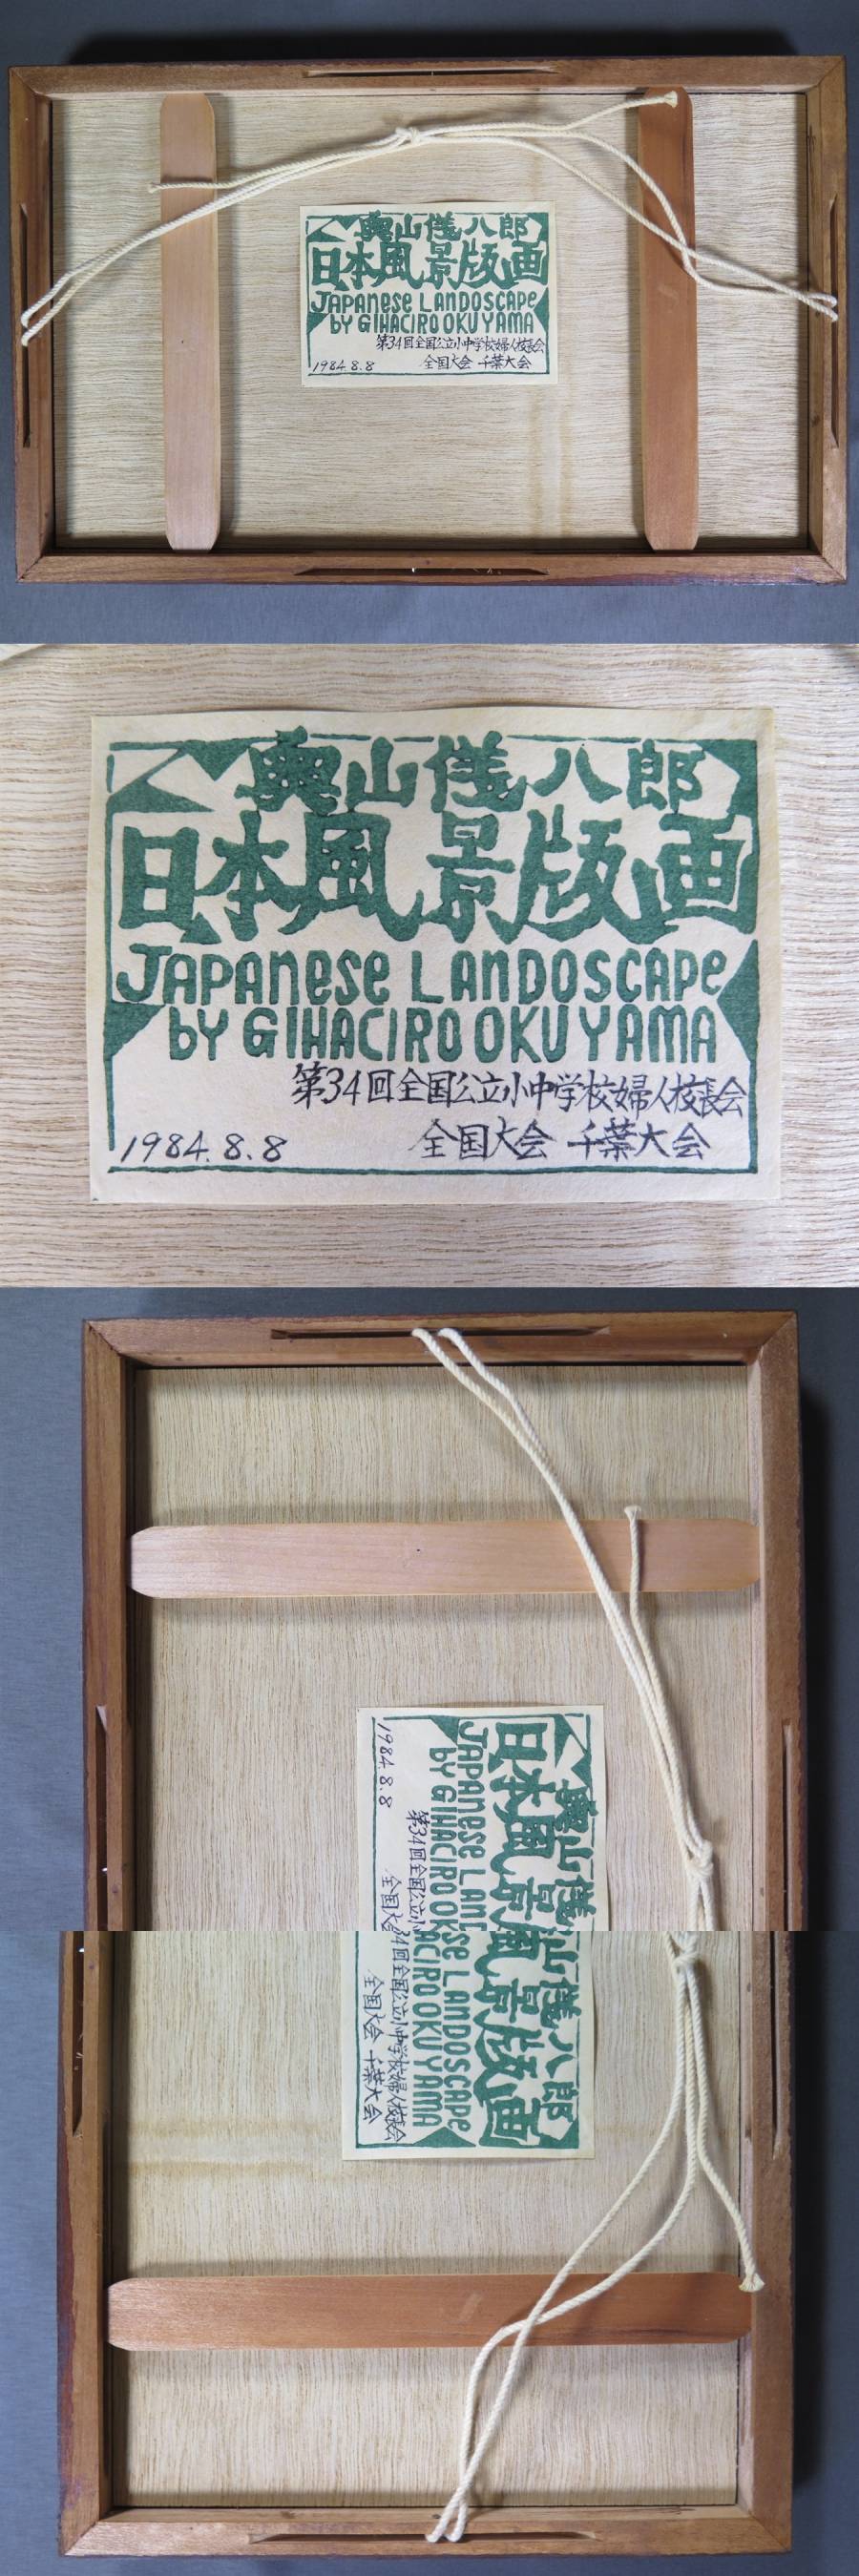 奥山儀八郎
日本風景版画
JAPANESE LANDOSCAPE
by GIHACIRO OKUYAMA
第34回全国公立小中学校婦人校長会
1984.8.8 全国大会 千葉大会
奥山儀八郎
日本風景版画
JAPANESE LANDOSCAPE
by GIHACIRO OKUYAMA
第34回全国公立小中学校婦人校長会
1984.8.8 全国大会 千葉大会
奥山儀
日本風景
JAPANESE LAND
by GIHACIRO OK
第34回全国公立小
1984.8.8 全国大会
山儀八郎
風景版画
SE LANDOSCAPE
ACIRO OKUYAMA
4回全国公立小中学校婦人校長会
全国大会 千葉大会